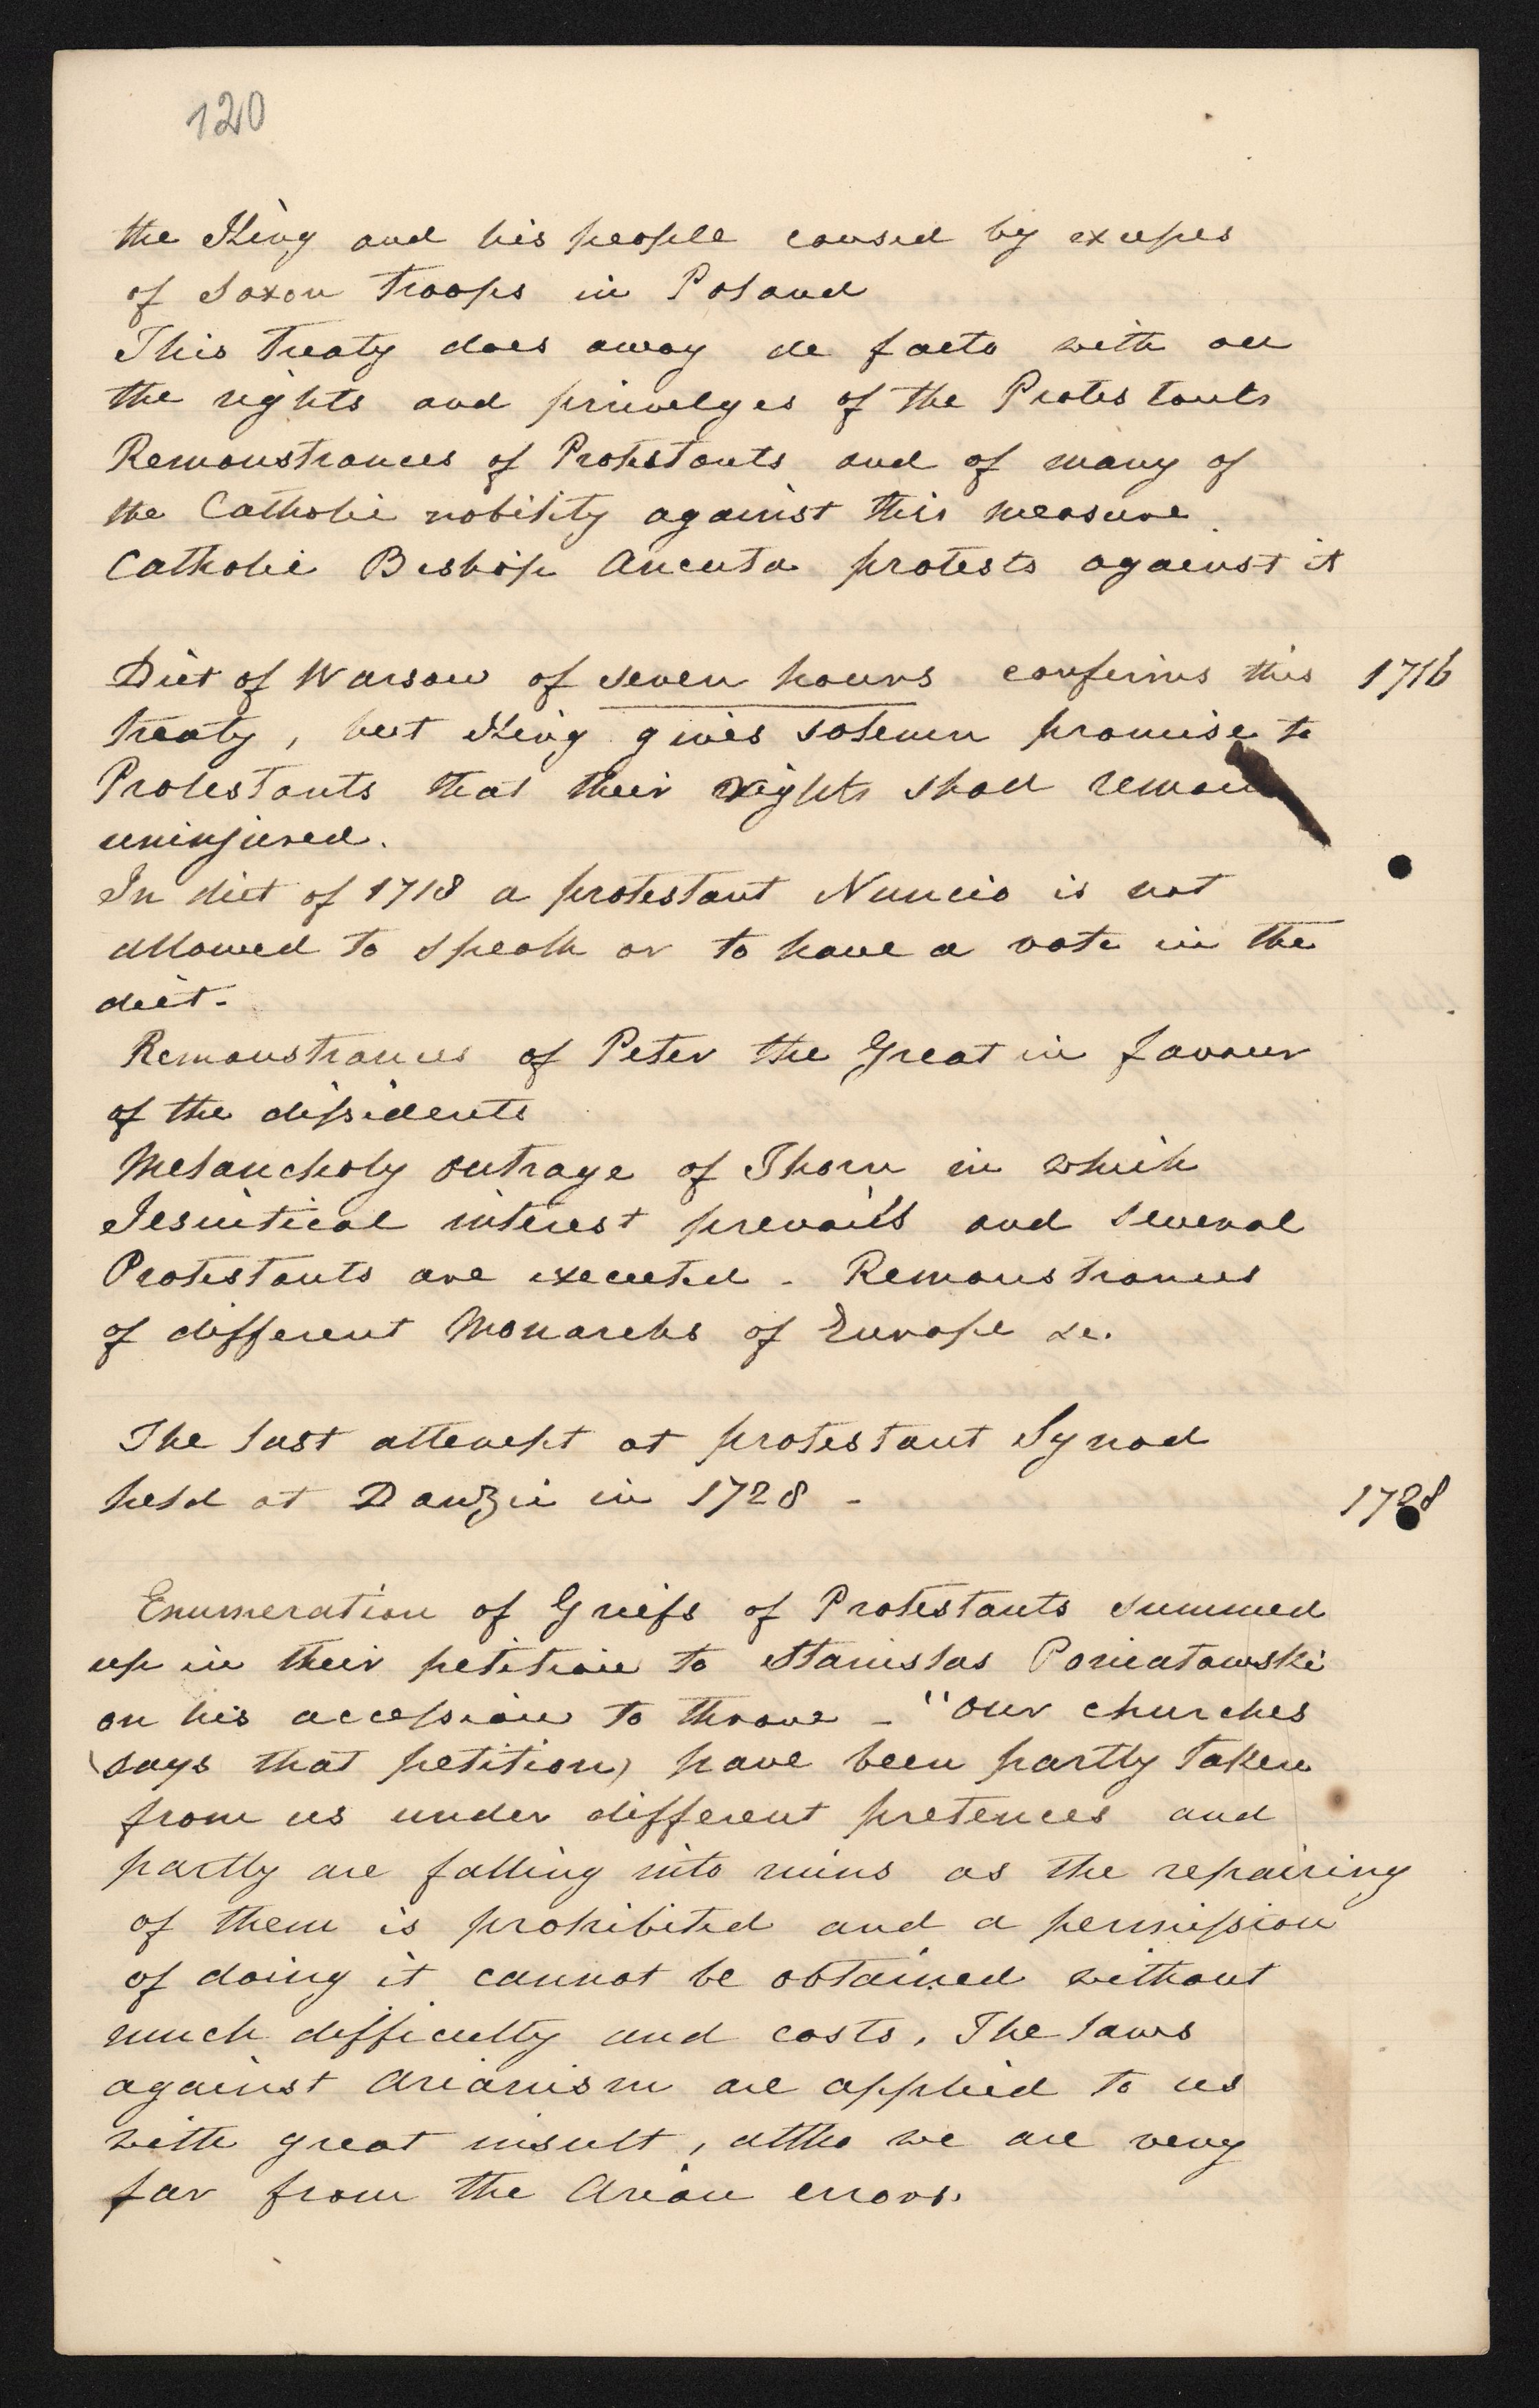 120
the King and his people caused by excesses
of Saxon troops in Poland
This treaty does away de facto with all
the rights and privelges of the Protestants
Remonstrances of Protestants and of many of
the Catholic nobility against this measure
Catholic Bishop Ancuta protests against it
Diet of Warsaw of seven hours confirms this 1716
treaty, but King gives solemn promise to
Protestants that their rights shall remain
uninjured.
In diet of 1718 a protestant Nuncio is not
allowed to speak or to have a vote in the
diet.
Remonstrances of Peter the Great in favour
of the dissidents
Melancholy outrage of Thorn in which
Jesuitical interest prevails and several
Protestants are executed - Remonstrances
of different Monarchs of Europe &c.
The last attempt at protestant Synod
held at Danzic in 1728 - 1728
Enumeration of Griefs of Protestants summed
up in their petition to Stanislas Poniatowski
on his accession to throne - "our churches
(says that petition) have been partly taken
from us under different pretences and
partly are falling into ruins as the repairing
of them is prohibited and a permission
of doing it cannot be obtained without
much difficulty and costs. The laws
against Arianism are applied to us
with great insult, altho we are very
far from the Arian errors.